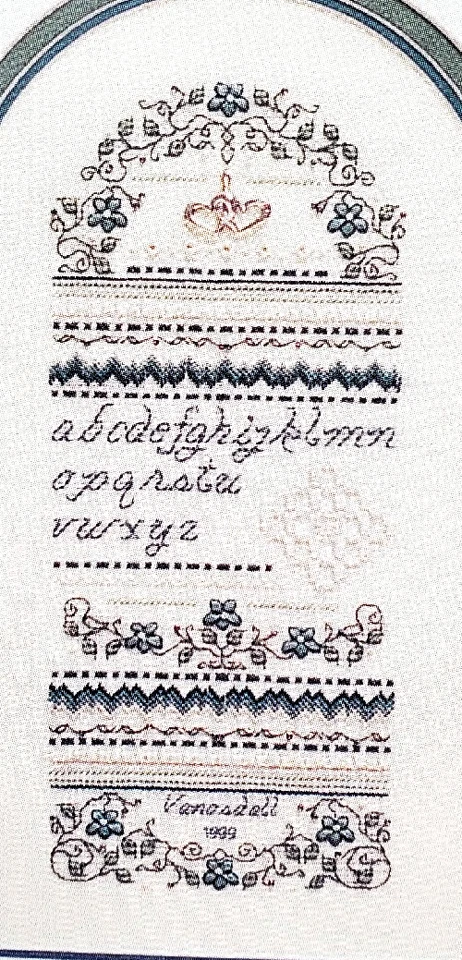 abcdefghijklmn
opqrstu
vwxyz
Vanosdell
1999